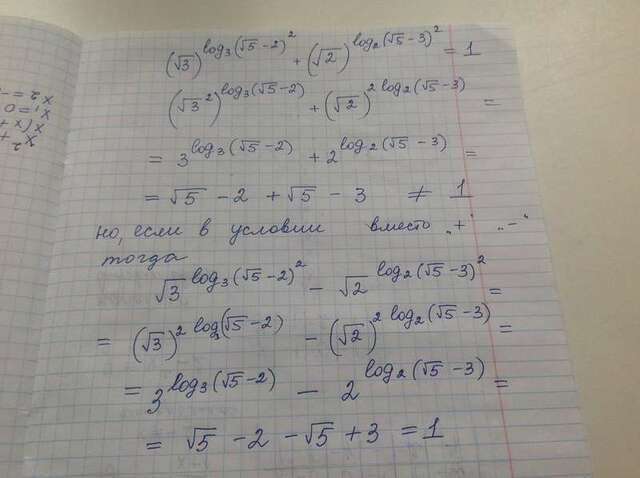 (√3)^log₃(√5-2)² + (√2)^log₂(√5-3)² = 1
(√3²)^log₃(√5-2) + (√2)^2 log₂(√5-3) =
= 3^log₃(√5-2) + 2^log₂(√5-3) =
= √5 - 2 + √5 - 3 ≠ 1
но, если в условии вместо „+" „-"
тогда
√3^log₃(√5-2)² - √2^log₂(√5-3)² =
= (√3)^2 log₃(√5-2) - (√2)^2 log₂(√5-3) =
= 3^log₃(√5-2) - 2^log₂(√5-3) =
= √5 - 2 - √5 + 3 = 1